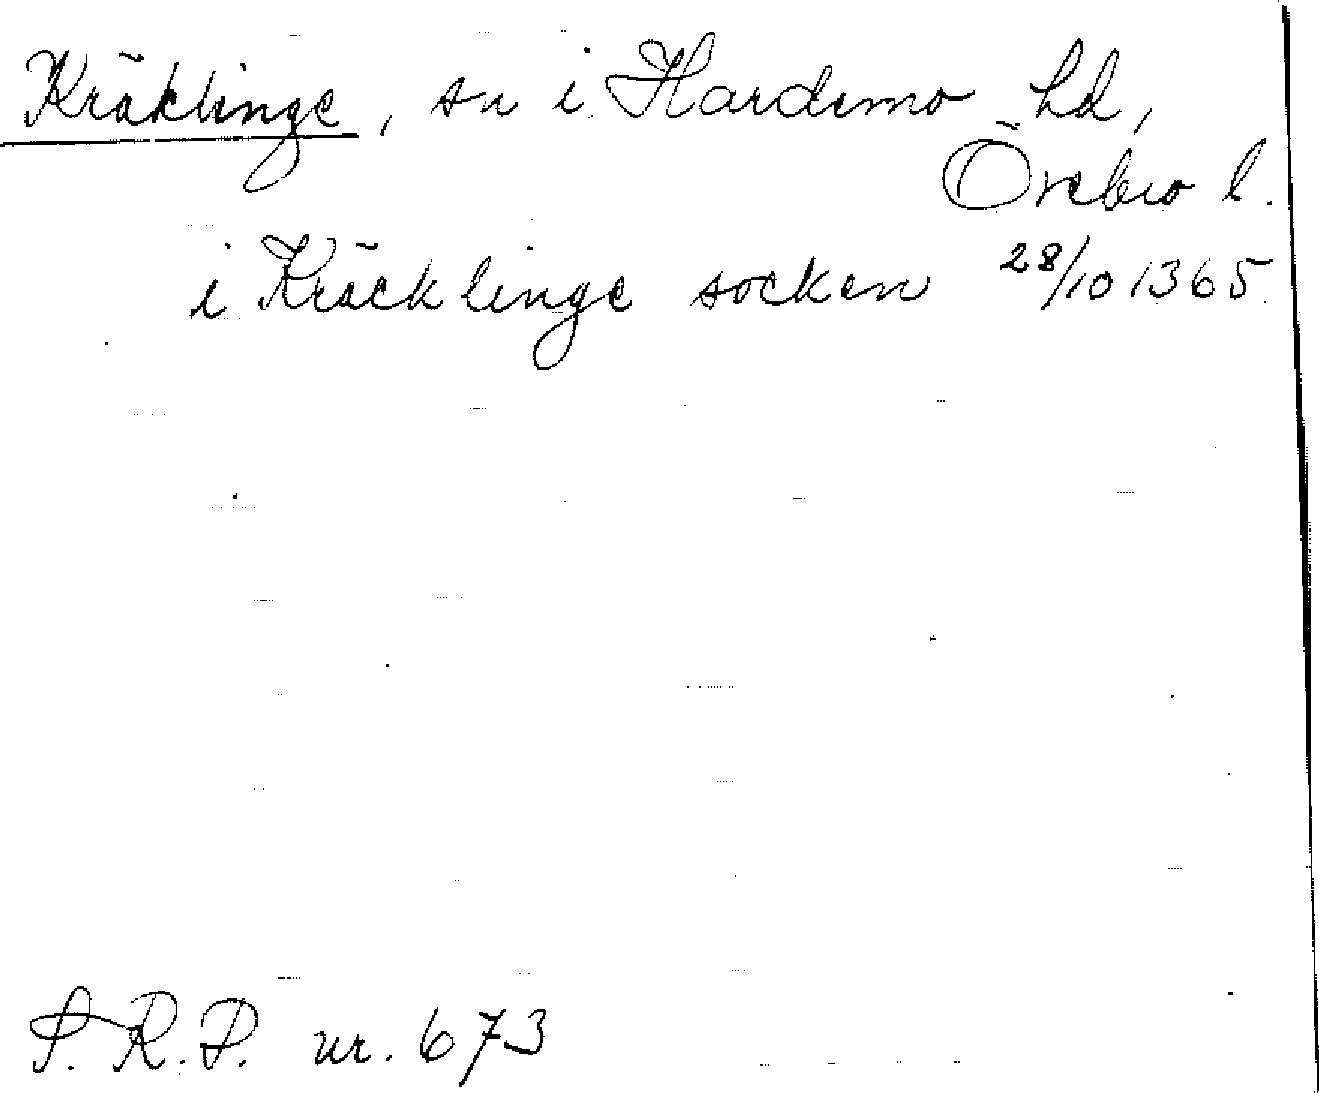 Kräklinge, sn i Hardemo hd,
Örebro l.
i Kräcklinge socken 28/10 1365
S.R.P. nr. 673